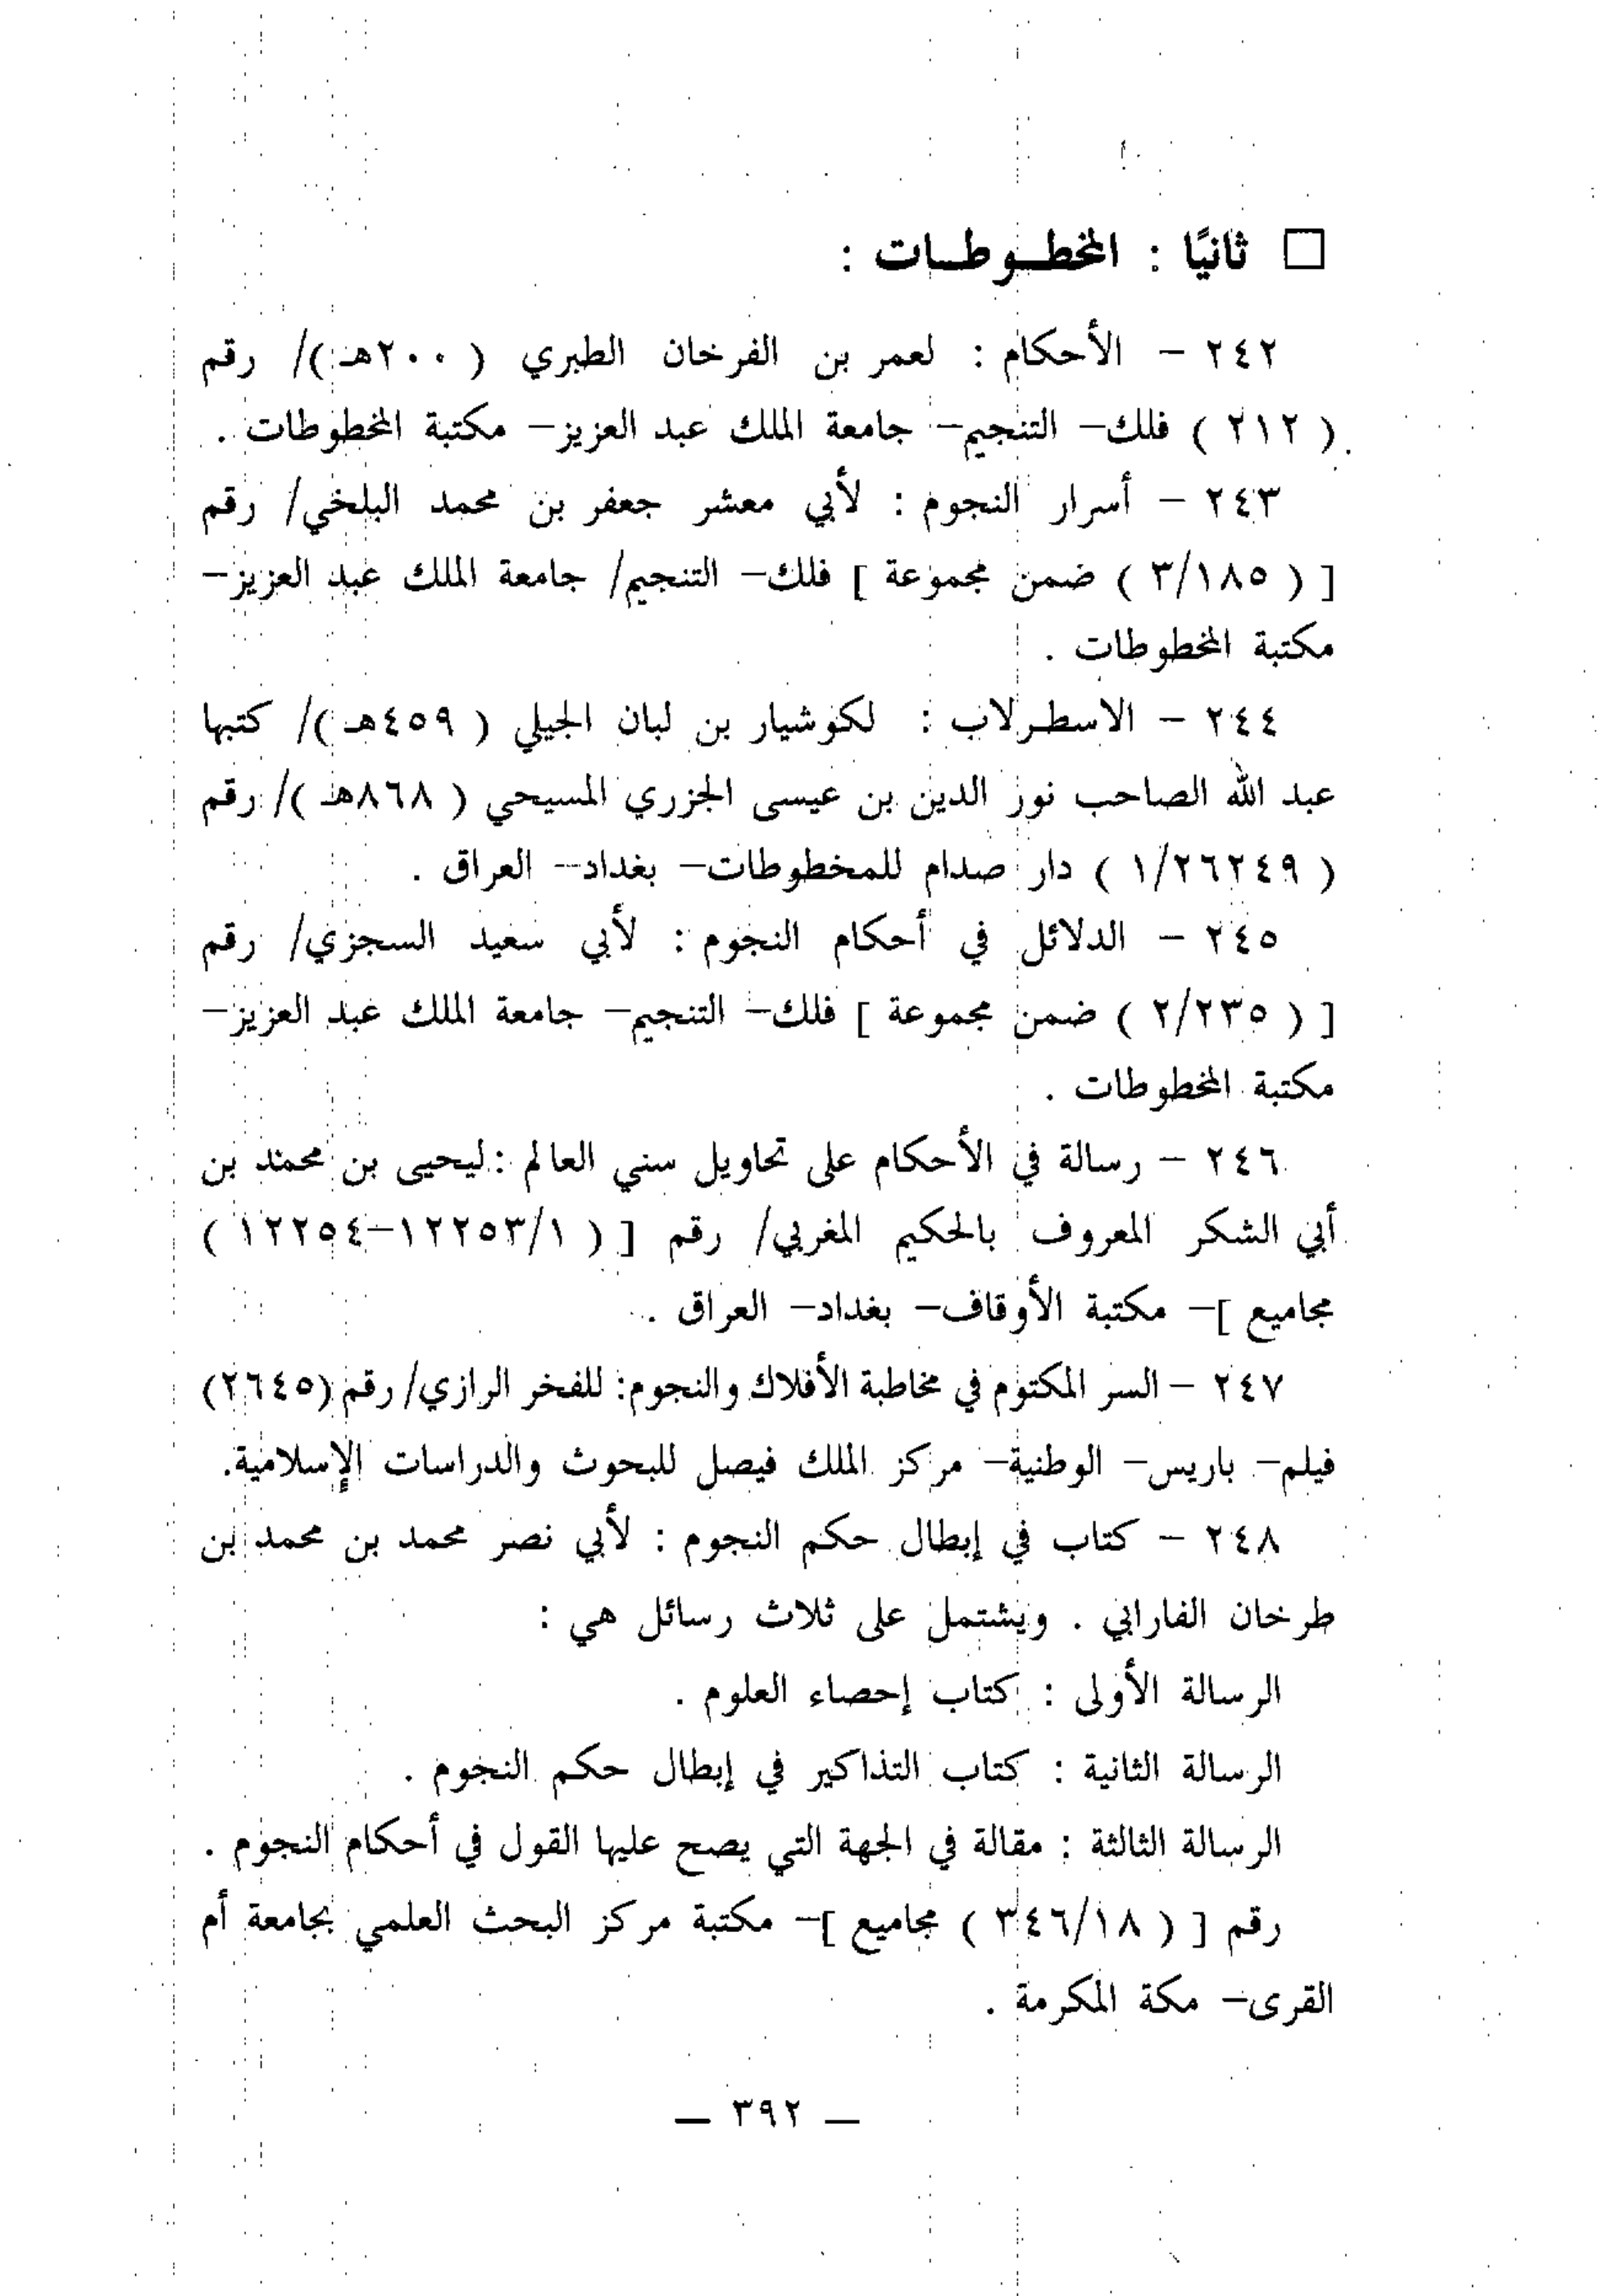 □ ثانيًا : المخطـوطـات :
٢٤٢ – الأحكام : لعمر بن الفرخان الطبري ( ٢٠٠هـ )/ رقم
( ٢١٢ ) فلك– التنجيم– جامعة الملك عبد العزيز– مكتبة المخطوطات .
٢٤٣ – أسرار النجوم : لأبي معشر جعفر بن محمد البلخي/ رقم
[ ( ٣/١٨٥ ) ضمن مجموعة ] فلك– التنجيم/ جامعة الملك عبد العزيز–
مكتبة المخطوطات .
٢٤٤ – الاسطـرلاب : لكوشيار بن لبان الجيلي ( ٤٥٩هـ )/ كتبها
عبد الله الصاحب نور الدين بن عيسى الجزري المسيحي ( ٨٦٨هـ )/ رقم
( ١/٢٦٢٤٩ ) دار صدام للمخطوطات– بغداد– العراق .
٢٤٥ – الدلائل في أحكام النجوم : لأبي سعيد السجزي/ رقم
[ ( ٢/٢٣٥ ) ضمن مجموعة ] فلك– التنجيم– جامعة الملك عبد العزيز–
مكتبة المخطوطات .
٢٤٦ – رسالة في الأحكام على تحاويل سني العالم : ليحيى بن محمد بن
أبي الشكر المعروف بالحكيم المغربي/ رقم [ ( ١٢٢٥٣/١–١٢٢٥٤ )
مجاميع ]– مكتبة الأوقاف– بغداد– العراق .
٢٤٧ – السر المكتوم في مخاطبة الأفلاك والنجوم: للفخر الرازي/ رقم (٢٦٤٥)
فيلم– باريس– الوطنية– مركز الملك فيصل للبحوث والدراسات الإسلامية.
٢٤٨ – كتاب في إبطال حكم النجوم : لأبي نصر محمد بن محمد بن
طرخان الفارابي . ويشتمل على ثلاث رسائل هي :
الرسالة الأولى : كتاب إحصاء العلوم .
الرسالة الثانية : كتاب التذاكير في إبطال حكم النجوم .
الرسالة الثالثة : مقالة في الجهة التي يصح عليها القول في أحكام النجوم .
رقم [ ( ٣٤٦/١٨ ) مجاميع ]– مكتبة مركز البحث العلمي بجامعة أم
القرى– مكة المكرمة .
— ٣٩٢ —